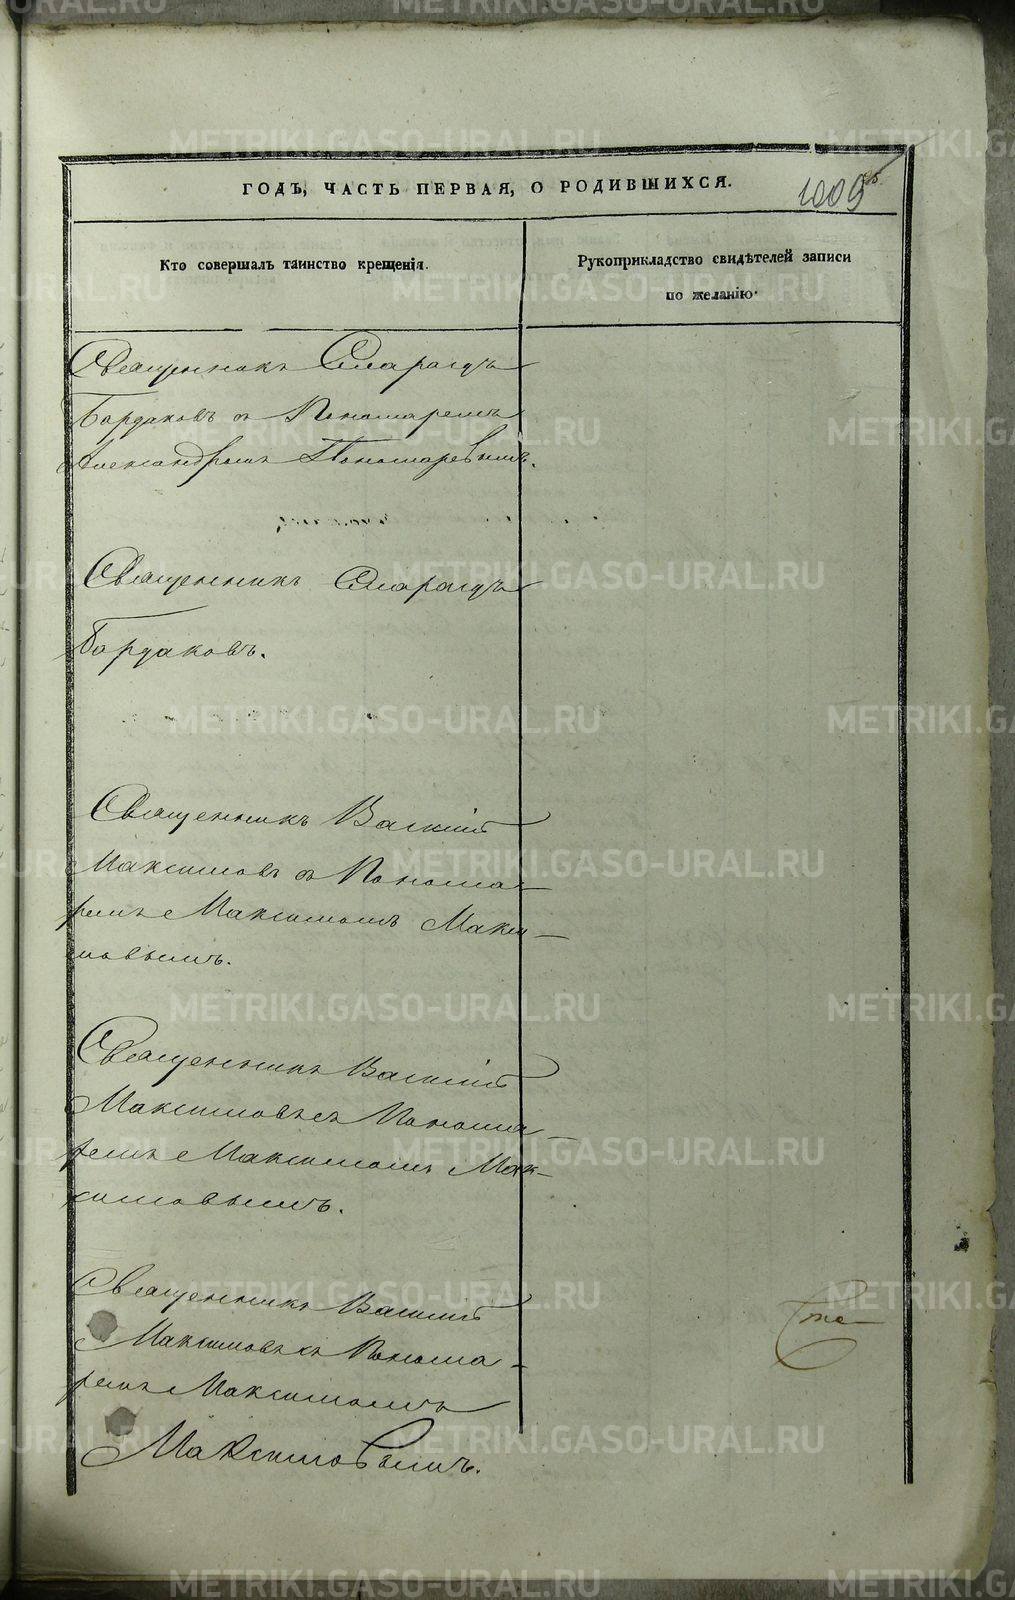 ГОДЪ, ЧАСТЬ ПЕРВАЯ, О РОДИВШИХСЯ.
1009
Кто совершалъ таинство крещенія.
Рукоприкладство свидѣтелей записи
по желанію.
Священникъ Смарагдъ
Бордаковъ съ Пономаремъ
Александромъ Пономаревымъ.
Священникъ Смарагдъ
Бордаковъ.
Священникъ Василій
Максимовъ съ Понома-
ремъ Максимомъ Макси-
мовымъ.
Священникъ Василій
Максимовъ съ Понома-
ремъ Максимомъ Мак-
симовымъ.
Священникъ Василій
Максимовъ съ Понома-
ремъ Максимомъ
Максимовымъ.
METRIKI.GASO-URAL.RU